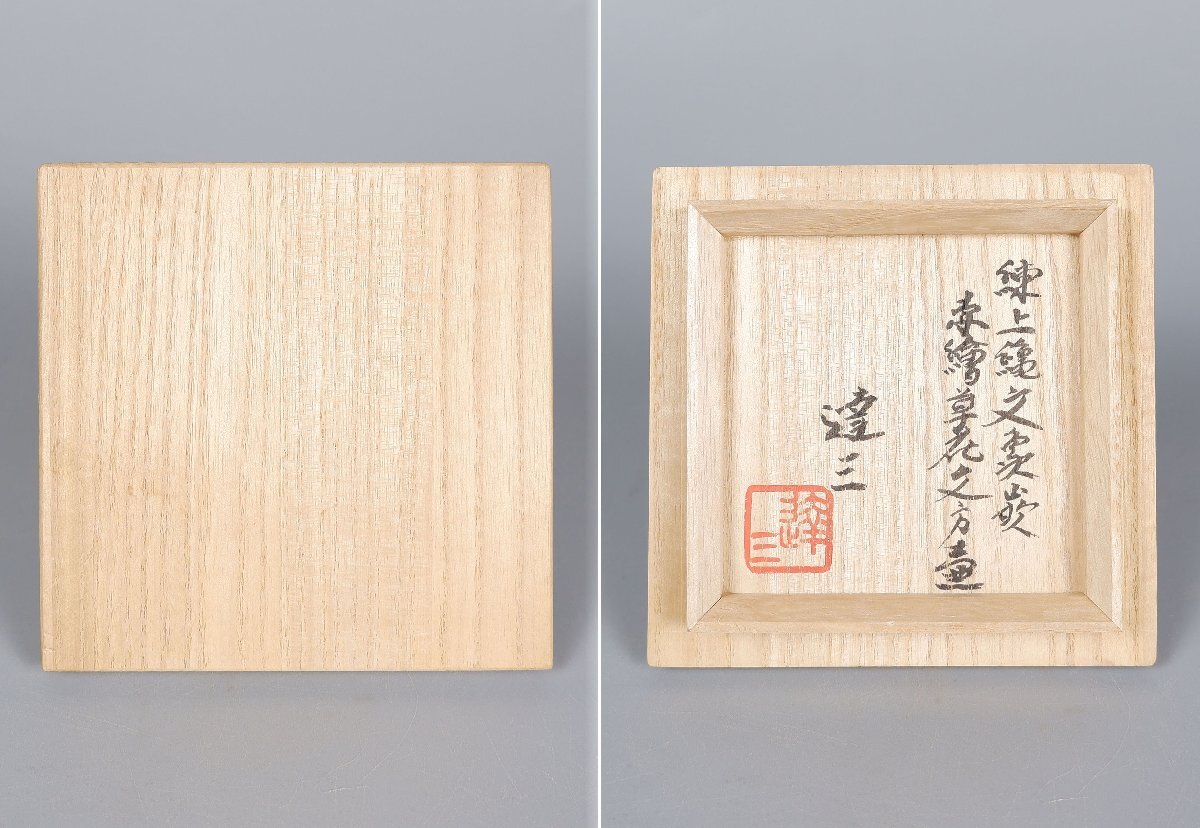 練上縄文象嵌
赤繪草花文方壷
達三
達三